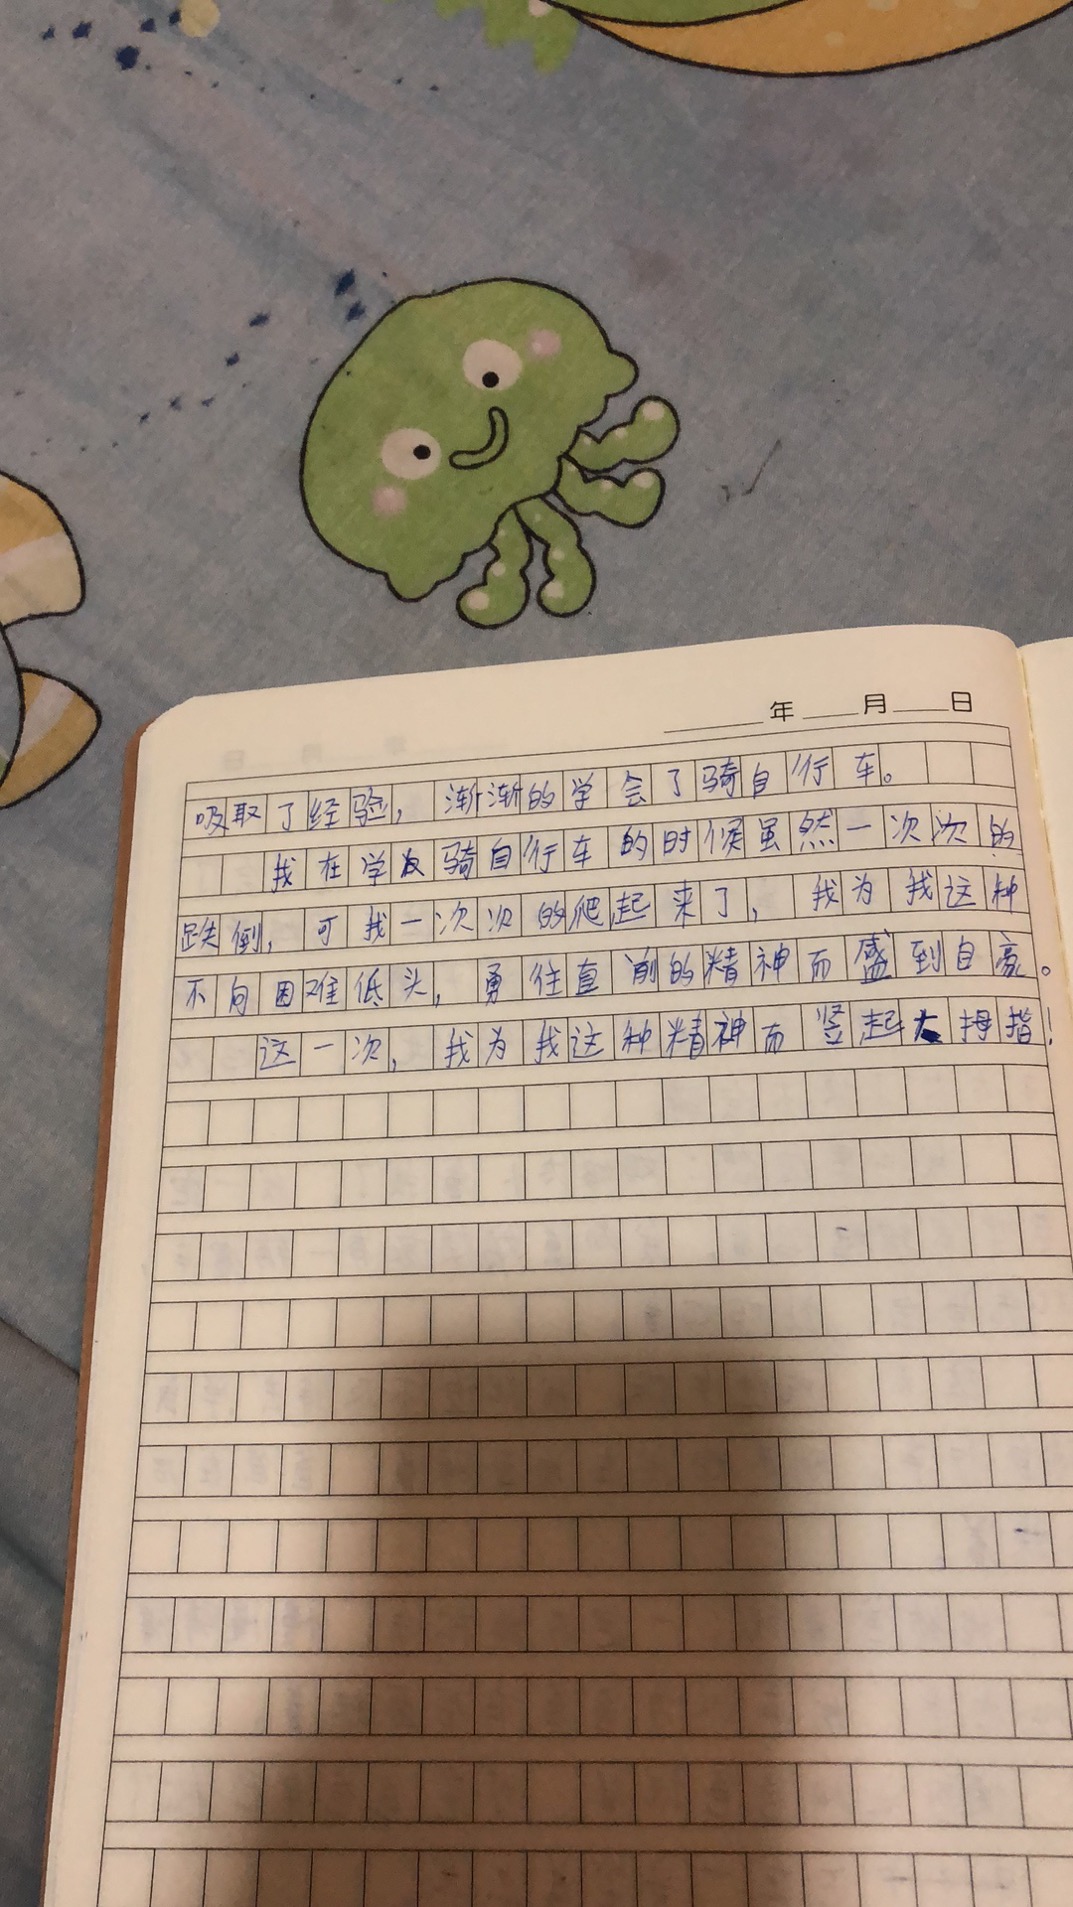 年 月 日
吸取了经验，渐渐的学会了骑自行车。
我在学友骑自行车的时候虽然一次次的
跌倒，可我一次次的爬起来了，我为我这种
不向困难低头，勇往直前的精神而盛到自豪。
这一次，我为我这种精神而竖起大拇指！